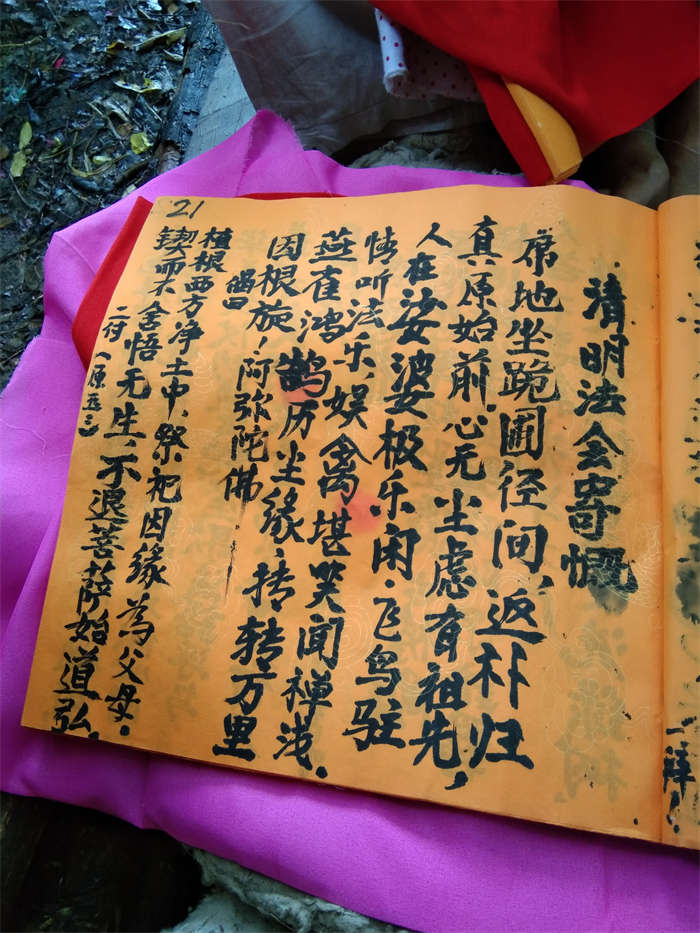 21
清明法会寄慨
席地坐跪圃径间、返朴归
真原始前.心无尘虑有祖先,
人在娑婆极乐闲.飞鸟驻
情听法乐、娱禽堪笑闻禅浅.
燕雀鸿鹄历尘缘、抟转万里
因根旋！阿弥陀佛
偈曰
植根西方净土中、祭祀因缘為父母.
锲而不舍悟无生、不退菩萨始道弘.
二付
一拜！